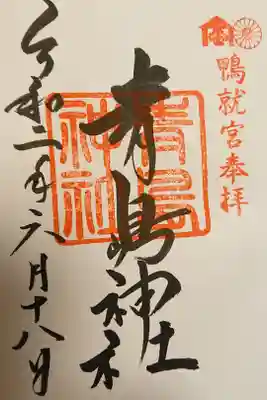 鴨就宮奉拝
青島神社
青島
神社
令和二年六月十八日